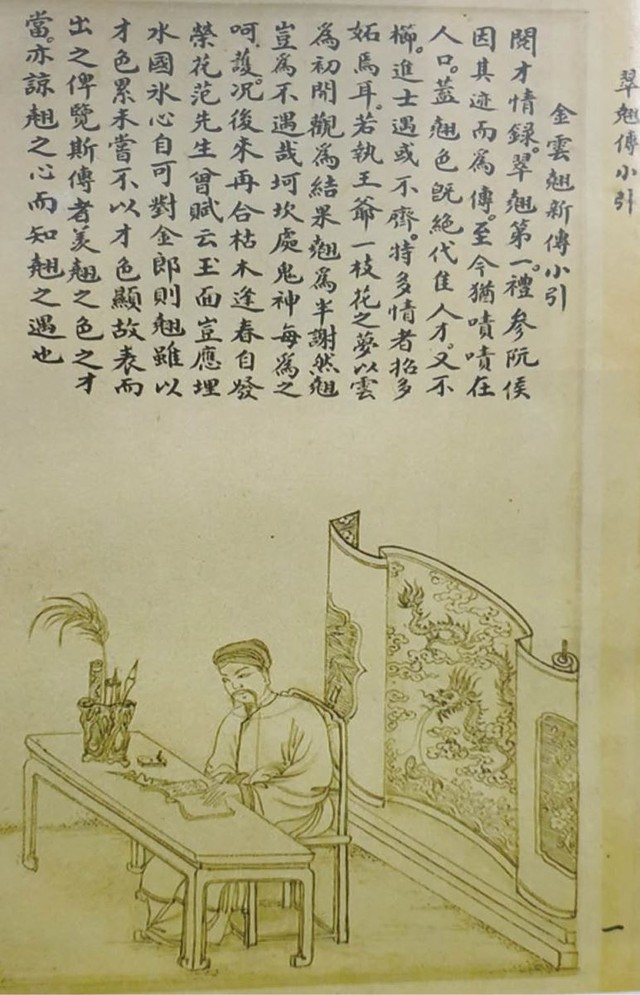 翠翹傳小引
金雲翹新傳小引
閱才情錄。翠翹第一。禮參阮侯
因其迹而爲傳。至今猶嘖嘖在
人口。蓋翹色旣絕代佳人才。又不
櫛。進士遇或不齊。特多情者招多
妬焉耳。若執王爺一枝花之夢以雲
爲初開觀爲結果翹爲半謝然翹
豈爲不遇哉坷坎處鬼神每爲之
呵護。况後來再合枯木逢春自發
榮花范先生曾賦云玉面豈應埋
水國氷心自可對金郎則翹雖以
才色累未嘗不以才色顯故表而
出之俾覽斯傳者羡翹之色之才
當。亦諒翹之心而知翹之遇也
一